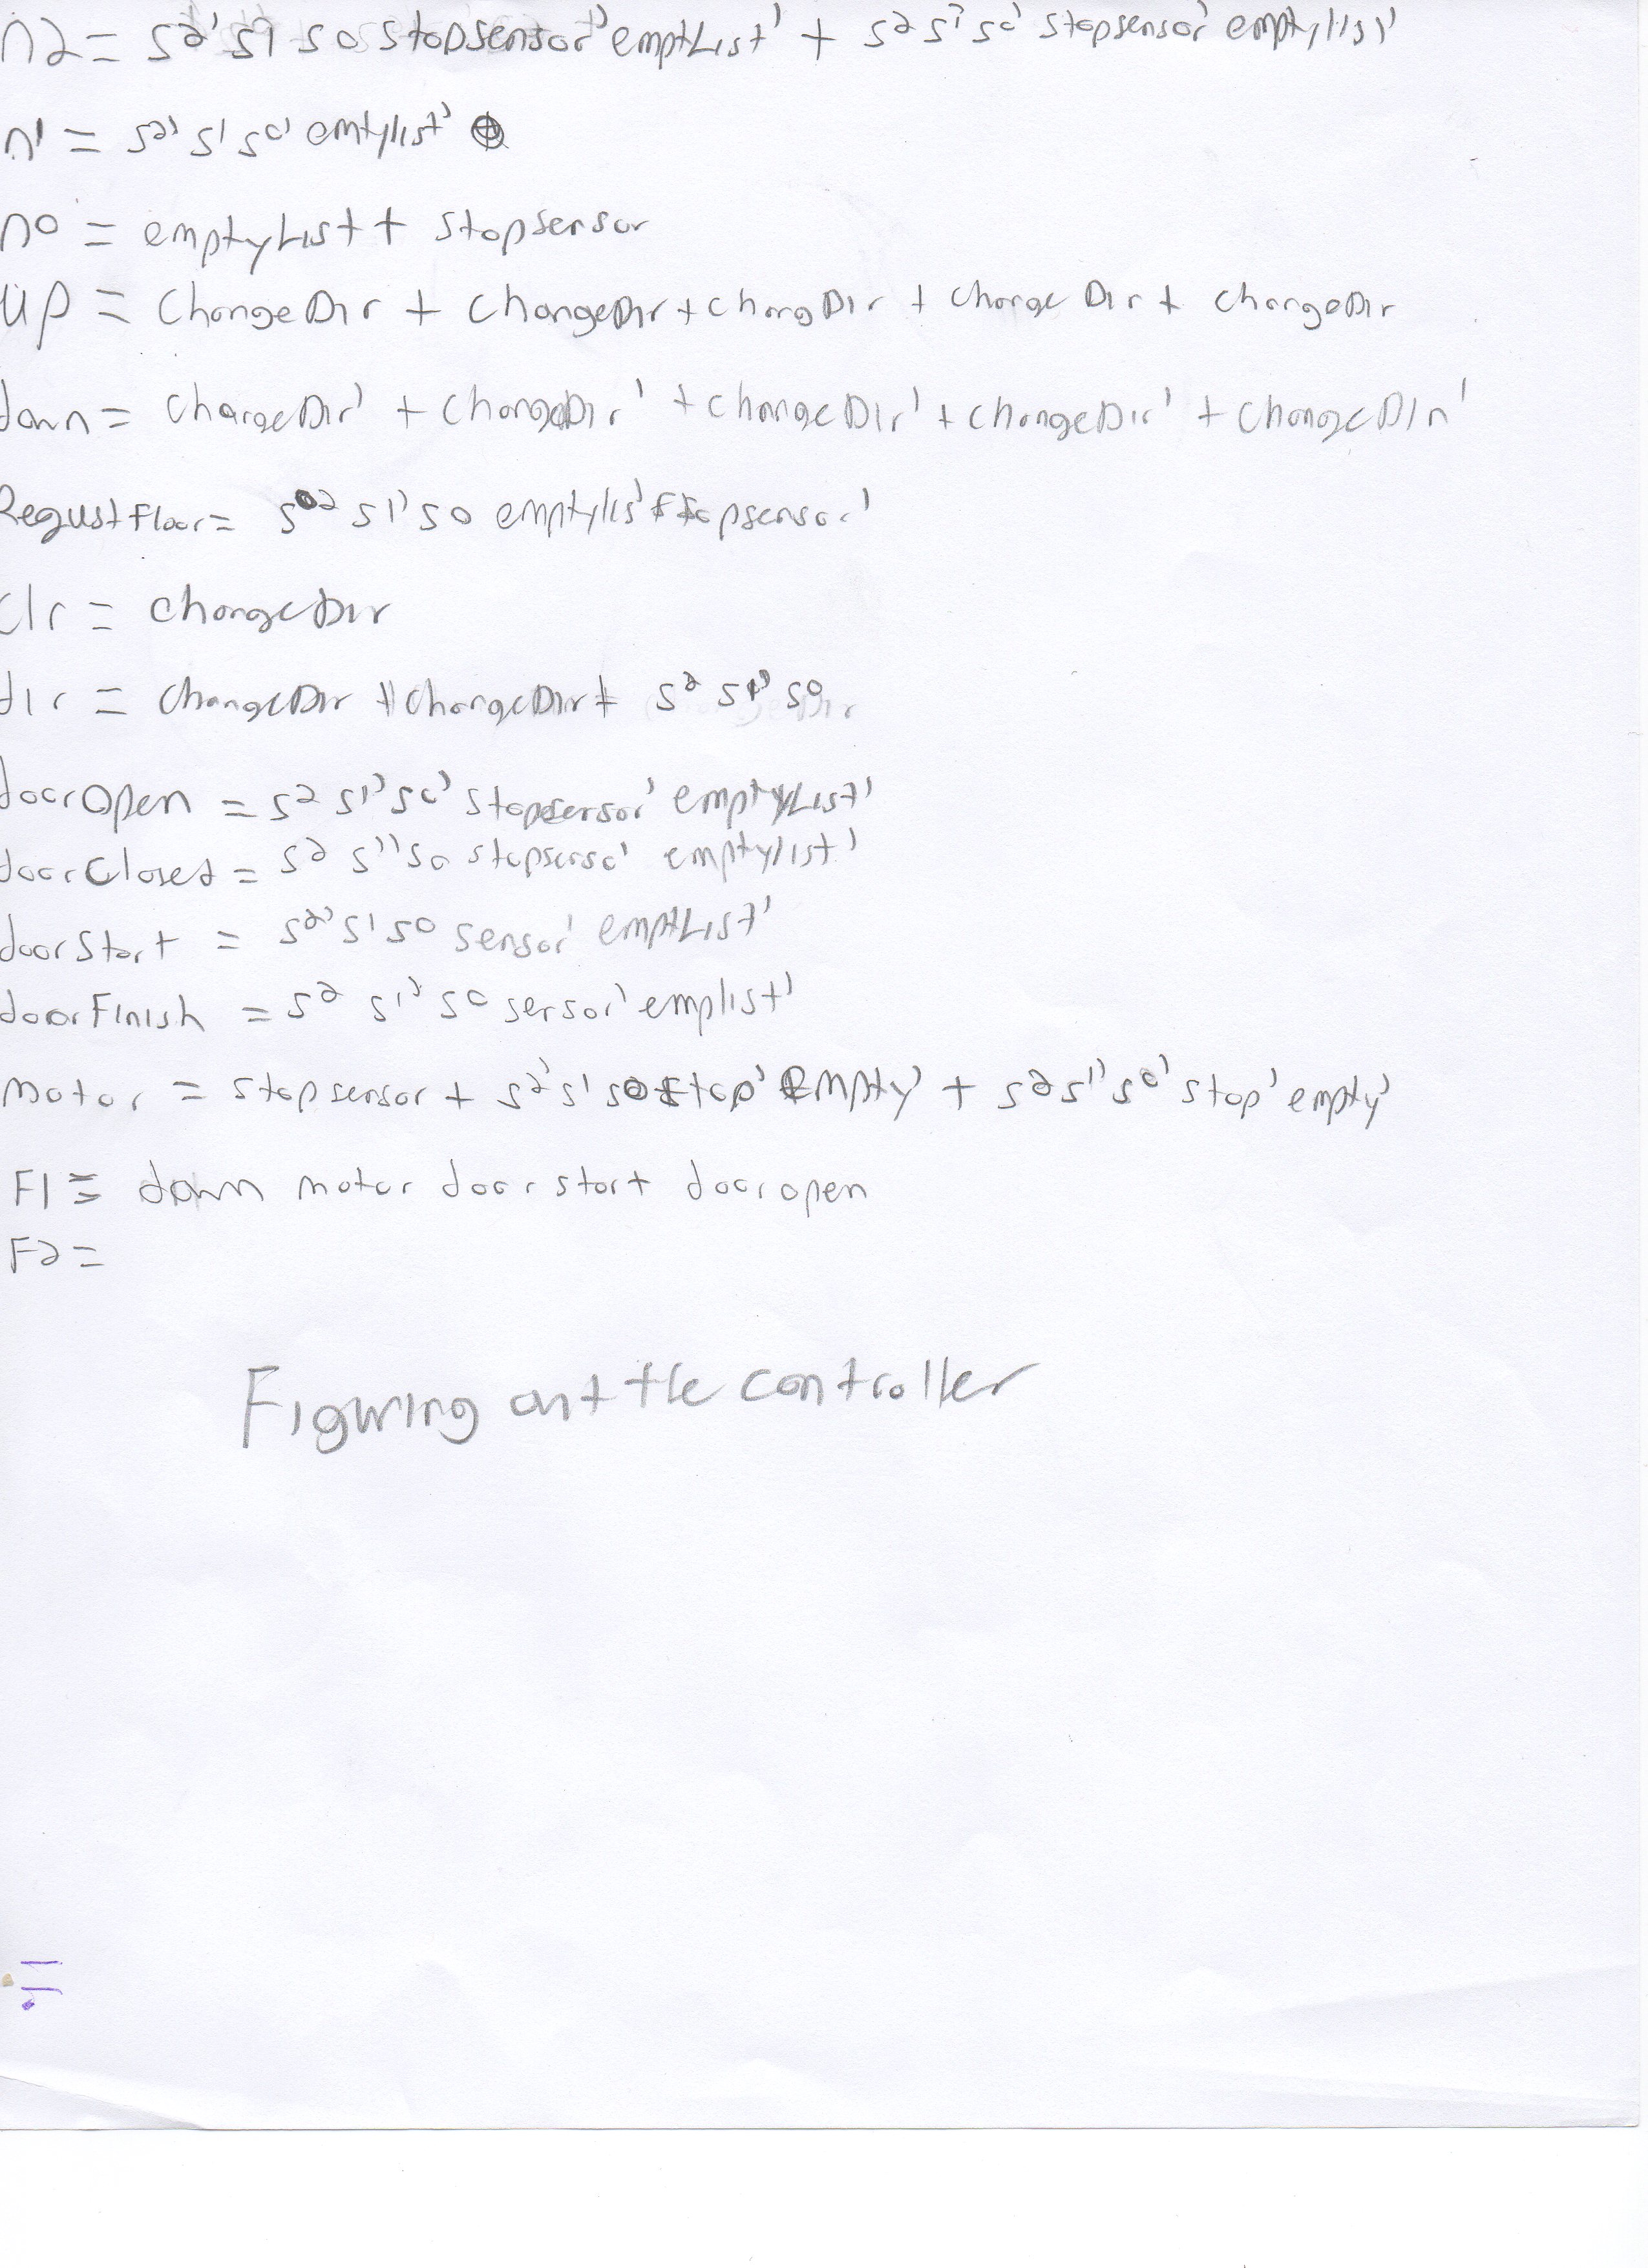 n2 = s2' s1 s0 stopsensor' emptList' + s2 s1' s0' stopsensor' emptylist'
n1 = s2' s1 s0' emtylist'
n0 = emptyList + stopsensor
up = changeDir + changeDir + changDir + change Dir + changeDir
down = changeDir' + changeDir' + changeDir' + changeDir' + changeDir'
RequstFloor = s2 s1' s0 emptylis' stopsensor'
clr = changeDir
dir = changeDir + changeDir + s2 s1' s0
doorOpen = s2 s1' s0' stopsensor' emptyList'
doorClosed = s2 s1' s0 stopsenso' emptylist'
doorStart = s2' s1 s0 sensor' emptList'
doorFinish = s2 s1' s0 sensor' emplist'
motor = stopsensor + s2' s1 s0 stop' Empty' + s2 s1' s0' stop' empty'
F1 = down motor doorstart dooropen
F2 =
Figuring out the controller